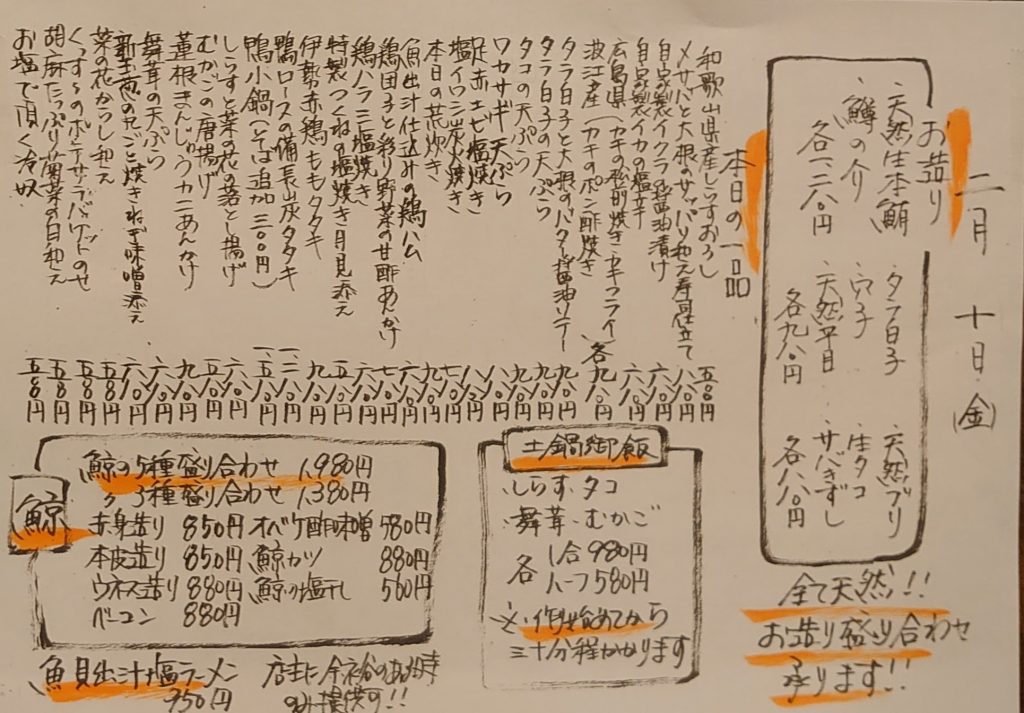 二月 十日(金)
お造り
天然生本鮪
鱒の介
各一、二八〇円
タラ白子
穴子
天然平目
各九八〇円
天然ブリ
生タコ
サバきずし
各八八〇円
全て天然!!
お造り盛り合わせ
承ります!!
本日の一品
和歌山県産しらすおろし 五八〇円
〆サバと大根のサッパリ和え寿司仕立て 八八〇円
自家製イクラ醤油漬け
自家製イカの塩辛
広島県(カキの松前焼き・カキフライ) 各九八〇円
波江産(カキのポン酢焼き
タラ白子と大根のバター醤油ソテー
タラ白子の天ぷら
タコの天ぷら
ワカサギ天ぷら
足赤エビ塩焼き
塩イワシ炭火焼き
本日の荒炊き
魚出汁仕込みの鶏ハム
鶏団子と彩り野菜の甘酢あんかけ
鶏ハラミ塩焼き
特製つくねの塩焼き月見添え
伊勢赤鶏ももタタキ
鴨ロースの備長炭タタキ
鴨小鍋(そば追加三〇〇円)
しらすと菜の花の落とし揚げ
むかごの唐揚げ
蓮根まんじゅうカニあんかけ
舞茸の天ぷら
新玉葱の丸ごと焼きねぎ味噌添え
菜の花からし和え
くっすーのポテサラバケットのせ
胡麻たっぷり菊菜の白和え
お塩で頂く冷奴 五八〇円
土鍋御飯
・しらす・タコ
・舞茸・むかご
各 1合 980円
ハーフ 580円
※作り始めてから
三十分程かかります
鯨
鯨の5種盛り合わせ 1,980円
〃 3種盛り合わせ 1,380円
赤身造り 850円 オバケ酢味噌 580円
本皮造り 850円 鯨カツ 880円
ウネス造り 880円 鯨の塩干し 560円
ベーコン 880円
魚貝出汁塩ラーメン
950円
店主に余裕のある時
のみ提供可!!